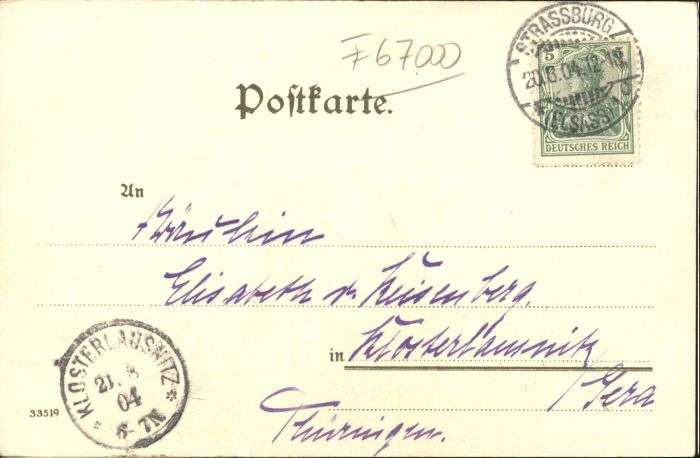 F67.000
STRASSBURG
20.6.04.12-1
(ELSASS)
5 5
DEUTSCHES REICH
Poſtkarte.
An
Fräulein
Elisabeth v.
in Klosterlausnitz
/Gera
Thüringen.
KLOSTERLAUSNITZ
21. 6
04
6-7N
33519